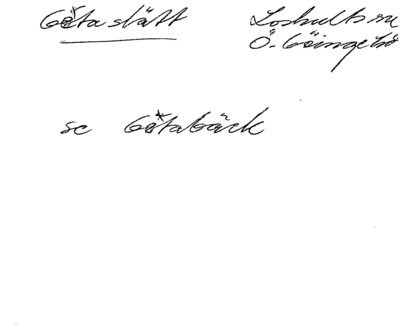 Götaslätt Loshults sn
Ö. Göinge hd
se Götabäck